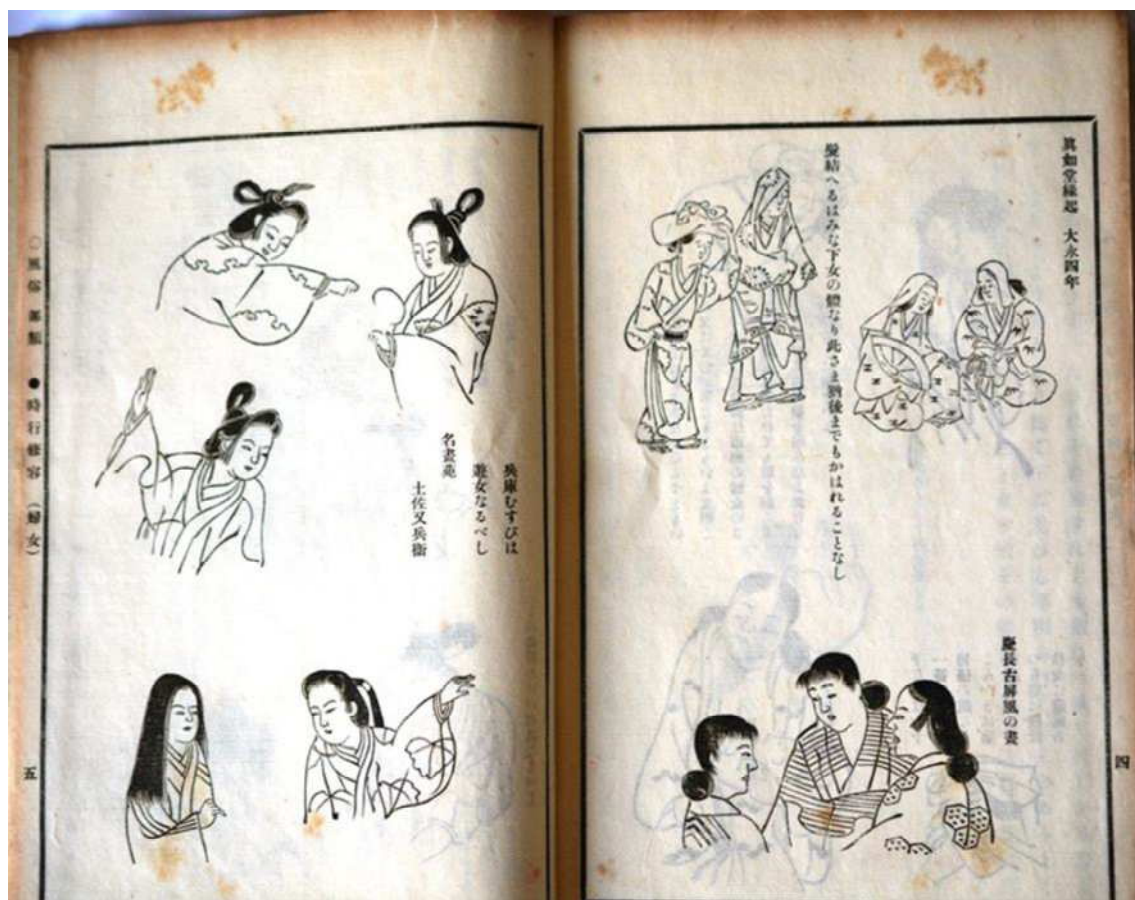 眞如堂縁起　大永四年
髮結へるはみな下女の體なり此さま後までもかはれることなし
慶長古屏風の畫
四
兵庫むすびは
遊女なるべし
名畫苑
土佐又兵衞
○風俗部類　●時行修容（婦女）
五